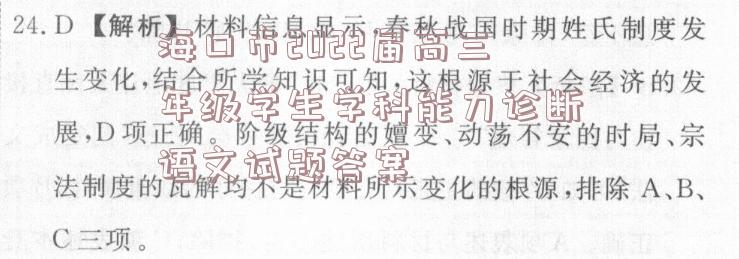 24. D【解析】材料信息显示,春秋战国时期姓氏制度发
生变化,结合所学知识可知,这根源于社会经济的发
展,D项正确。阶级结构的嬗变、动荡不安的时局、宗
法制度的瓦解均不是材料所示变化的根源,排除 A、B、
C三项。
海口市2022届高三
年级学生学科能力诊断
语文试题答案